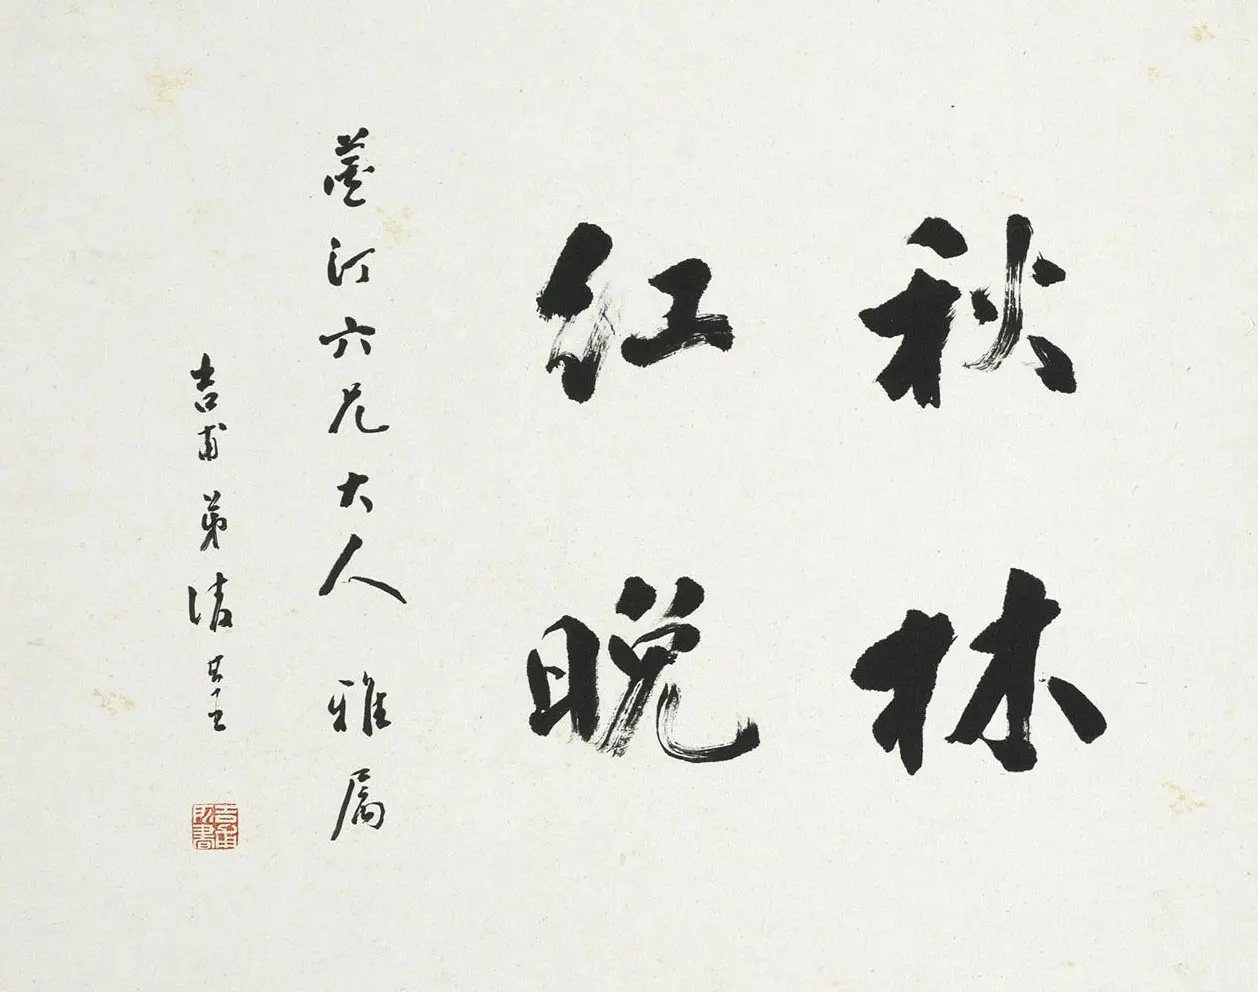 秋林
紅晚
汀六兄大人 雅属
吉甫弟
吉甫
所書